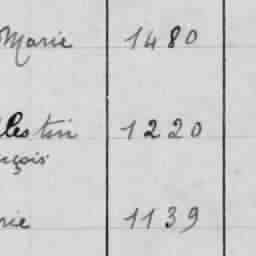 Marie 1480
lestin 1220
nçois
rie 1139